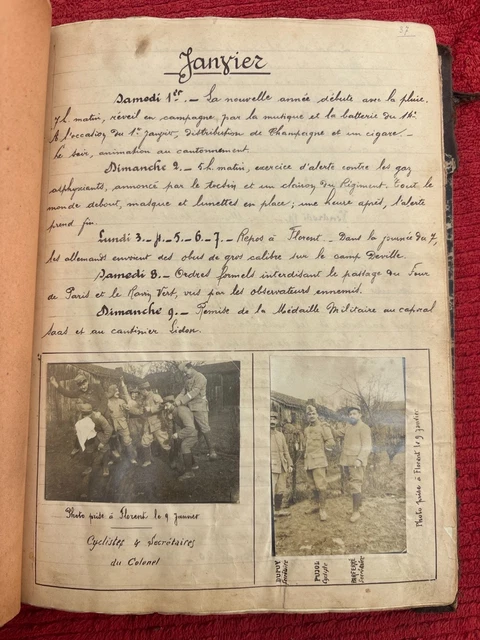 37
Janvier
Samedi 1er. - La nouvelle année débute avec la pluie.
7h. matin, réveil en campagne, par la musique et la batterie du
A l'occasion du 1er Janvier, distribution de Champagne et un cigare -
Le soir, animation au cantonnement.
Dimanche 2. - 5h. matin, exercice d'alerte contre les gaz
asphyxiants, annoncé par le tocsin et un clairon du Régiment. Tout le
monde debout, masque et lunettes en place; une heure après, l'alerte
prend fin.
Lundi 3. - 4 - 5. - 6. - 7. - Repos à Florent. - Dans la journée du 7,
les allemands envoient des obus de gros calibre sur le camp Deville.
Samedi 8. - Ordres formels interdisant le passage du Four
de Paris et le Ravin Vert, vus par les observateurs ennemis.
Dimanche 9. - Remise de la Médaille Militaire au caporal
Saas et au cantinier Lidon.
Photo prise à Florent le 9 Janvier
Cyclistes & Secrétaires
du Colonel
DUPUY
Secrétaire
PUJOS
Cycliste
Secrétaire
Photo prise à Florent le 9 Janvier